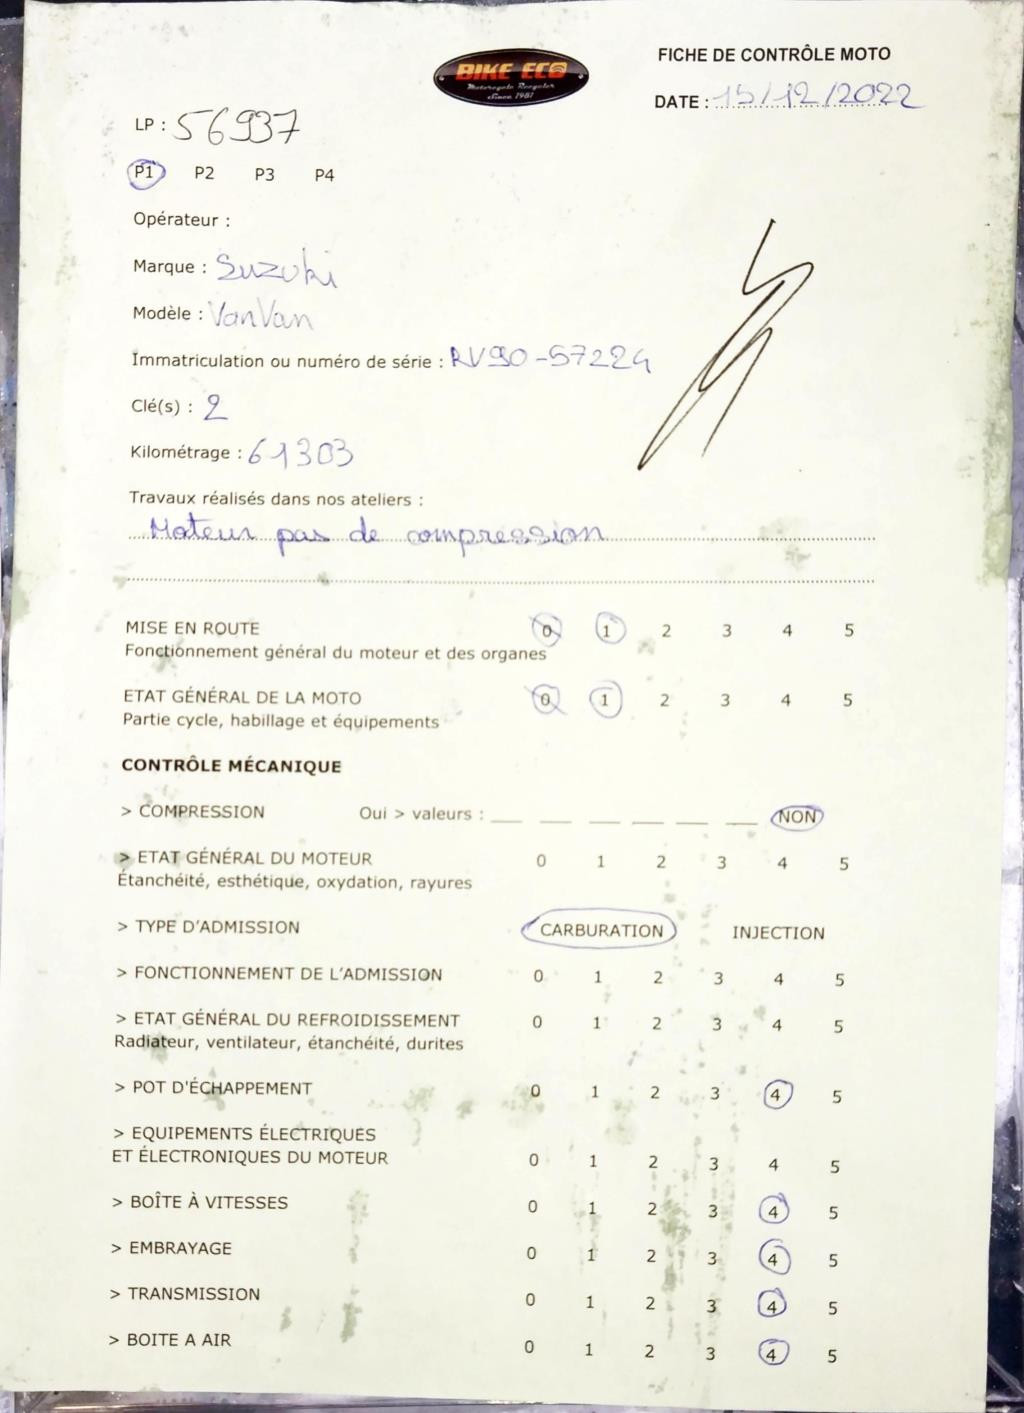 BIKE ECO
Motorcycle Recycler
Since 1987
FICHE DE CONTRÔLE MOTO
DATE : 15/12/2022
LP : 56937
P1 P2 P3 P4
Opérateur :
Marque : Suzuki
Modèle : VanVan
Immatriculation ou numéro de série : RV90-57224
Clé(s) : 2
Kilométrage : 61303
Travaux réalisés dans nos ateliers :
Moteur pas de compression
MISE EN ROUTE 0 1 2 3 4 5
Fonctionnement général du moteur et des organes
ETAT GÉNÉRAL DE LA MOTO 0 1 2 3 4 5
Partie cycle, habillage et équipements
CONTRÔLE MÉCANIQUE
> COMPRESSION Oui > valeurs : __ __ __ __ __ __ NON
> ETAT GÉNÉRAL DU MOTEUR 0 1 2 3 4 5
Étanchéité, esthétique, oxydation, rayures
> TYPE D'ADMISSION CARBURATION INJECTION
> FONCTIONNEMENT DE L'ADMISSION 0 1 2 3 4 5
> ETAT GÉNÉRAL DU REFROIDISSEMENT 0 1 2 3 4 5
Radiateur, ventilateur, étanchéité, durites
> POT D'ÉCHAPPEMENT 0 1 2 3 4 5
> EQUIPEMENTS ÉLECTRIQUES
ET ÉLECTRONIQUES DU MOTEUR 0 1 2 3 4 5
> BOÎTE À VITESSES 0 1 2 3 4 5
> EMBRAYAGE 0 1 2 3 4 5
> TRANSMISSION 0 1 2 3 4 5
> BOITE A AIR 0 1 2 3 4 5